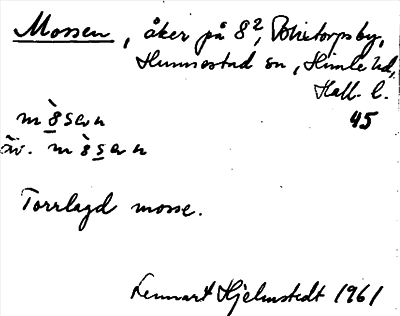 Mossen, åker på 8², Potietorpsby,
Hunnestad sn, Himle hd,
Hall. l.
45
m ò̱ s ə n
äv. m ò s̱ ə n
Torrlagd mosse.
Lennart Hjelmstedt 1961